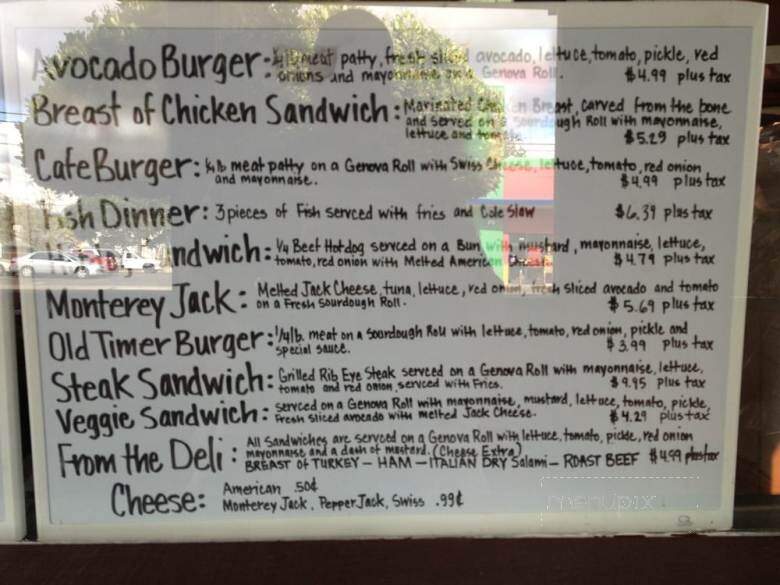 Avocado Burger: ¼lb meat patty, fresh sliced avocado, lettuce, tomato, pickle, red
onions and mayonnaise on a Genova Roll. $4.99 plus tax
Breast of Chicken Sandwich: Marinated Chicken Breast, carved from the bone
and served on a Sourdough Roll with mayonnaise,
lettuce and tomato. $5.29 plus tax
Cafe Burger: ¼lb meat patty on a Genova Roll with Swiss Cheese, lettuce, tomato, red onion
and mayonnaise. $4.99 plus tax
Fish Dinner: 3 pieces of Fish served with fries and Cole Slaw $6.39 plus tax
ndwich: ¼ Beef Hotdog served on a Bun with mustard, mayonnaise, lettuce,
tomato, red onion with Melted American Cheese. $4.79 plus tax
Monterey Jack: Melted Jack Cheese, tuna, lettuce, red onion, fresh sliced avocado and tomato
on a Fresh Sourdough Roll. $5.69 plus tax
Old Timer Burger: 1/4lb. meat on a Sourdough Roll with lettuce, tomato, red onion, pickle and
special sauce. $3.99 plus tax
Steak Sandwich: Grilled Rib Eye Steak served on a Genova Roll with mayonnaise, lettuce,
tomato and red onion, served with Fries. $9.95 plus tax
Veggie Sandwich: served on a Genova Roll with mayonnaise, mustard, lettuce, tomato, pickle,
Fresh sliced avocado with melted Jack Cheese. $4.29 plus tax
From the Deli: All Sandwiches are served on a Genova Roll with lettuce, tomato, pickle, red onion
mayonnaise and a dash of mustard. (Cheese Extra)
BREAST of TURKEY – HAM – ITALIAN DRY Salami – ROAST BEEF $4.99 plus tax
Cheese: American .50¢
Monterey Jack, Pepper Jack, Swiss .99¢
menupix